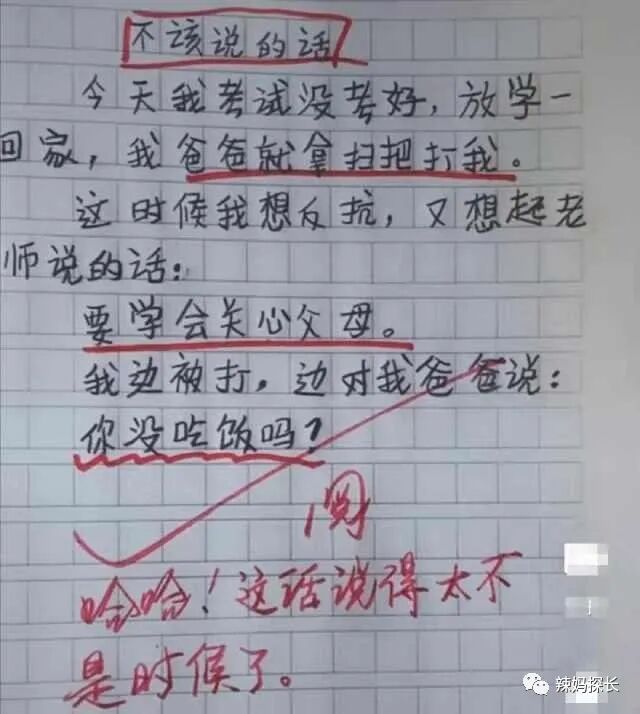 不该说的话
今天我考试没考好，放学一
回家，我爸爸就拿扫把打我。
这时候我想反抗，又想起老
师说的话：
要学会关心父母。
我边被打，边对我爸爸说：
你没吃饭吗？
阅
哈哈！这话说得太不
是时候了。
辣妈探长